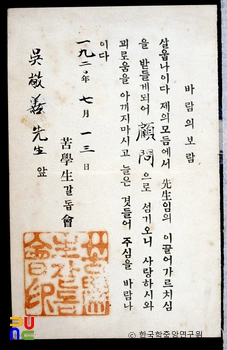 바람의 보람
살옵나이다 제의 모듬에서 先生임의 이끌어가르치심
을 받들게되어 顧問으로 섬기오니 사랑하시와
괴로움을 아끼지마시고 늘은 것들어 주심을 바람나
이다
一九二〇年 七月 一三日
苦學生갈돕會
吳敬善 先生 앞
苦學生갈돕會印
© 한국학중앙연구원